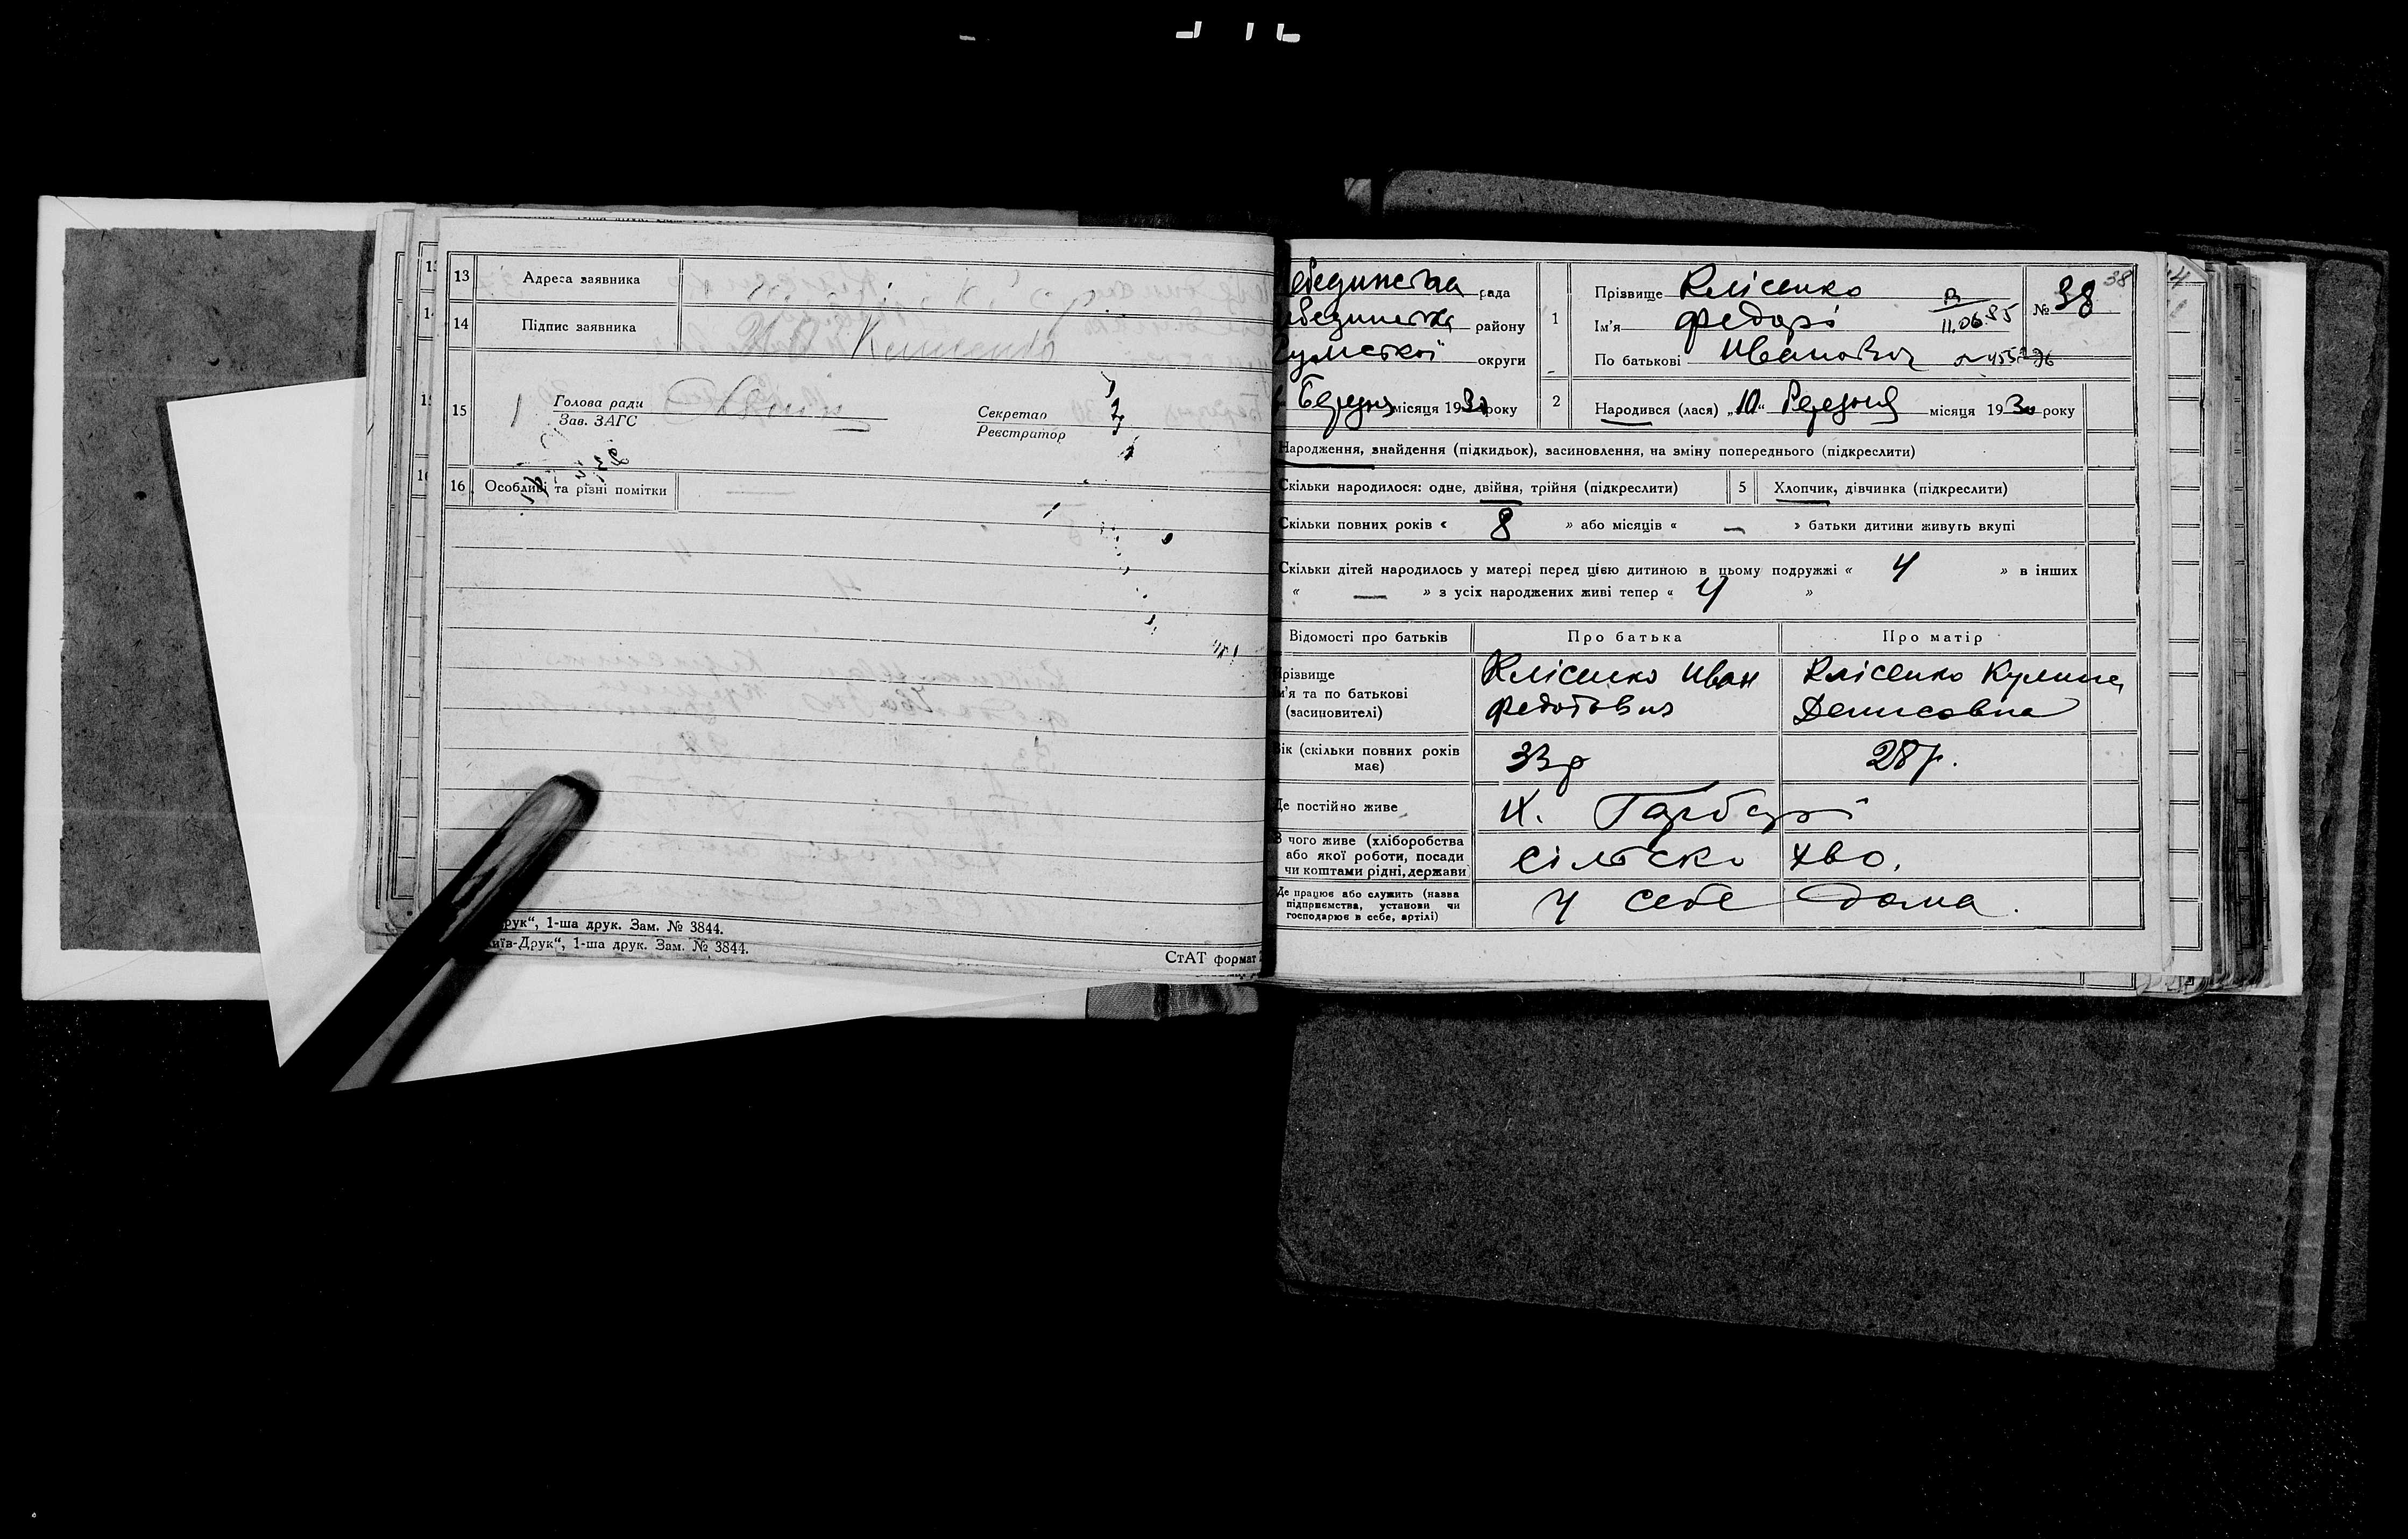 13 Адреса заявника
14 Підпис заявника
15 Голова ради
Зав. ЗАГС
Секретар
Реєстратор
16 Особливі та різні помітки
рук“, 1-ша друк. Зам. № 3844.
иїв-Друк“, 1-ша друк. Зам. № 3844.
СтАТ формат
38
рада
району
Сумської округи
Березня місяця 1930 року
1 Прізвище Клісенко
Ім'я Федорі
По батькові Иванович
11.06.85
№ 38
2 Народився (лася) „10“ Березня місяця 1930 року
Народження, знайдення (підкидьок), засиновлення, на зміну попереднього (підкреслити)
Скільки народилося: одне, двійня, трійня (підкреслити) 5 Хлопчик, дівчинка (підкреслити)
Скільки повних років « 8 » або місяців « — » батьки дитини живуть вкупі
Скільки дітей народилось у матері перед цією дитиною в цьому подружжі « 4 » в інших
« — » з усіх народжених живі тепер « 4 »
Відомості про батьків Про батька Про матір
різвище
м'я та по батькові
(засиновителі)
Клісенко Иван
Федотович
Клісенко Кулина
Денисовна
ік (скільки повних років
має)
33 р
28 р.
Де постійно живе
х.
З чого живе (хліборобства
або якої роботи, посади
чи коштами рідні, держави
сільско хво.
Де працює або служить (назва
підприємства, установи чи
господарює в себе, артілі)
У себе дома.